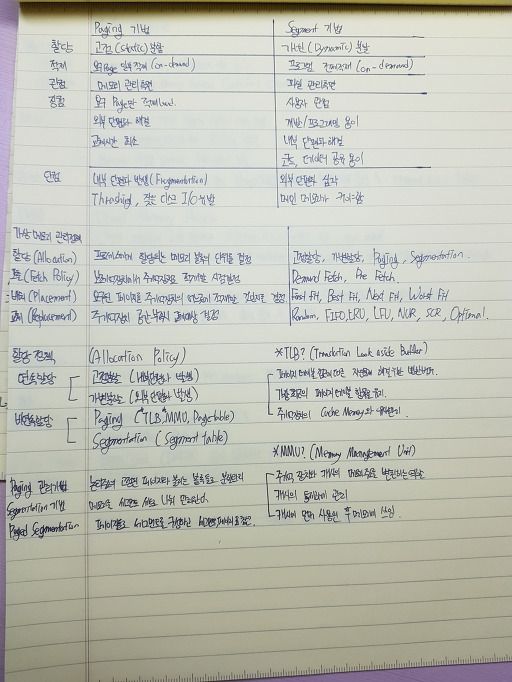 Paging 기법 Segment 기법
할당 고정(Static) 분할 가변(Dynamic) 분할
적재 요구Page 일부 적재(on-demand) 프로그램 전체적재(on-demand)
관점 메모리 관리측면 파일 관리측면
장점 요구 Page만 적재load. 사용자 관점
외부 단편화 해결 개발/프로그래밍 용이
교체시간 최소 내부 단편화 해결
코드, 데이터 공유 용이
단점 내부 단편화 발생(Fragmentation) 외부 단편화 심각
Thrashing, 잦은 디스크 I/O 유발 메인 메모리가 커야함
가상 메모리 관리정책
할당(Allocation) 프로세스에게 할당되는 메모리 블록의 단위를 결정 고정할당, 가변할당, Paging, Segmentation.
호출(Fetch Policy) 보조기억장치에서 주기억장치로 적재할 시점결정 Demand Fetch, Pre Fetch.
배치(Placement) 요구된 페이지를 주기억장치의 어느곳에 적재할 것인지를 결정 First Fit, Best Fit, Next Fit, Worst Fit
교체(Replacement) 주기억장치 공간 부족시 교체대상 결정 Random, FIFO, LRU, LFU, NUR, SCR, Optional.
할당 정책 (Allocation Policy) *TLB? (Translation Look aside Buffer)
연속할당 고정분할 (내부단편화 발생) 페이지 테이블
가변분할 (외부 단편화 발생) 페이지 테이블 항목을 유지.
비연속할당 Paging (*TLB, *MMU, Pagetable) 주기억장치의 Cache Memory와 유사
Segmentation (Segment table)
*MMU? (Memory Management Unit)
Paging 관리기법 고정된 페이지라 불리는 블록들로 분할관리 가상의 메모리주소를 변환하는 역할
Segmentation 기법 메모리를 세그먼트 세트로 나눠 관리한다. 캐시의 관리
Paged Segmentation 페이징을 세그먼트로 캐시에 먼저 사용된 후 메모리에 쓰임